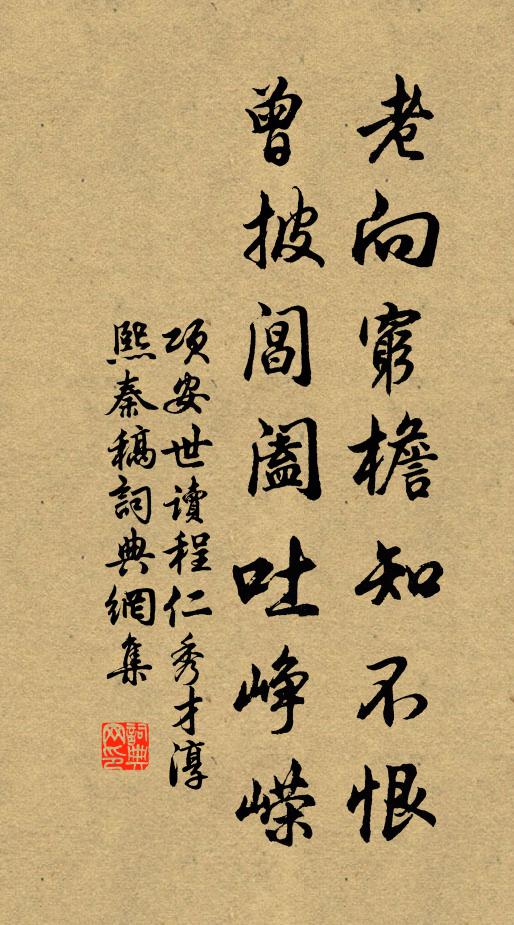 老向窮檐知不恨
曾披閶闔吐崢嶸
項安世讀程仁秀才淳
熙秦稿詞典網集
詞典网印